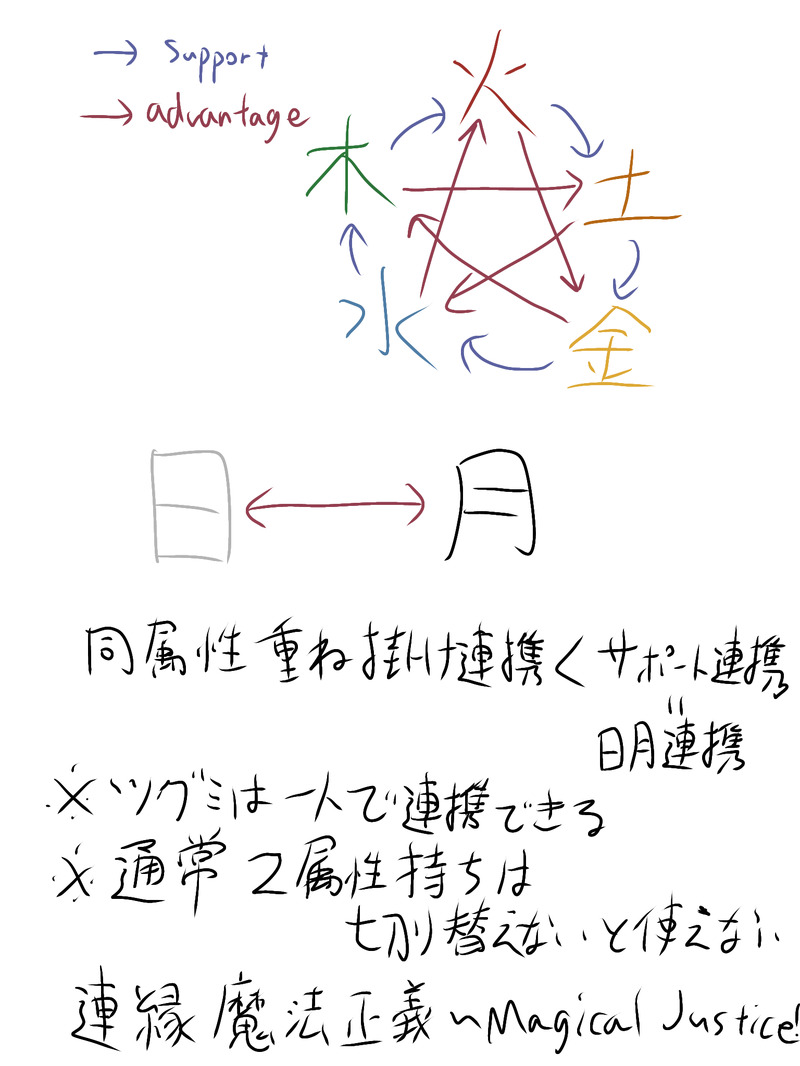 → support
→ advantage
火
木
土
水
金
日 ↔ 月
同属性重ね掛け連携 < サポート連携
=
日月連携
※ツグミは一人で連携できる
※通常2属性持ちは
切り替えないと使えない
連縁魔法正義~Magical Justice!